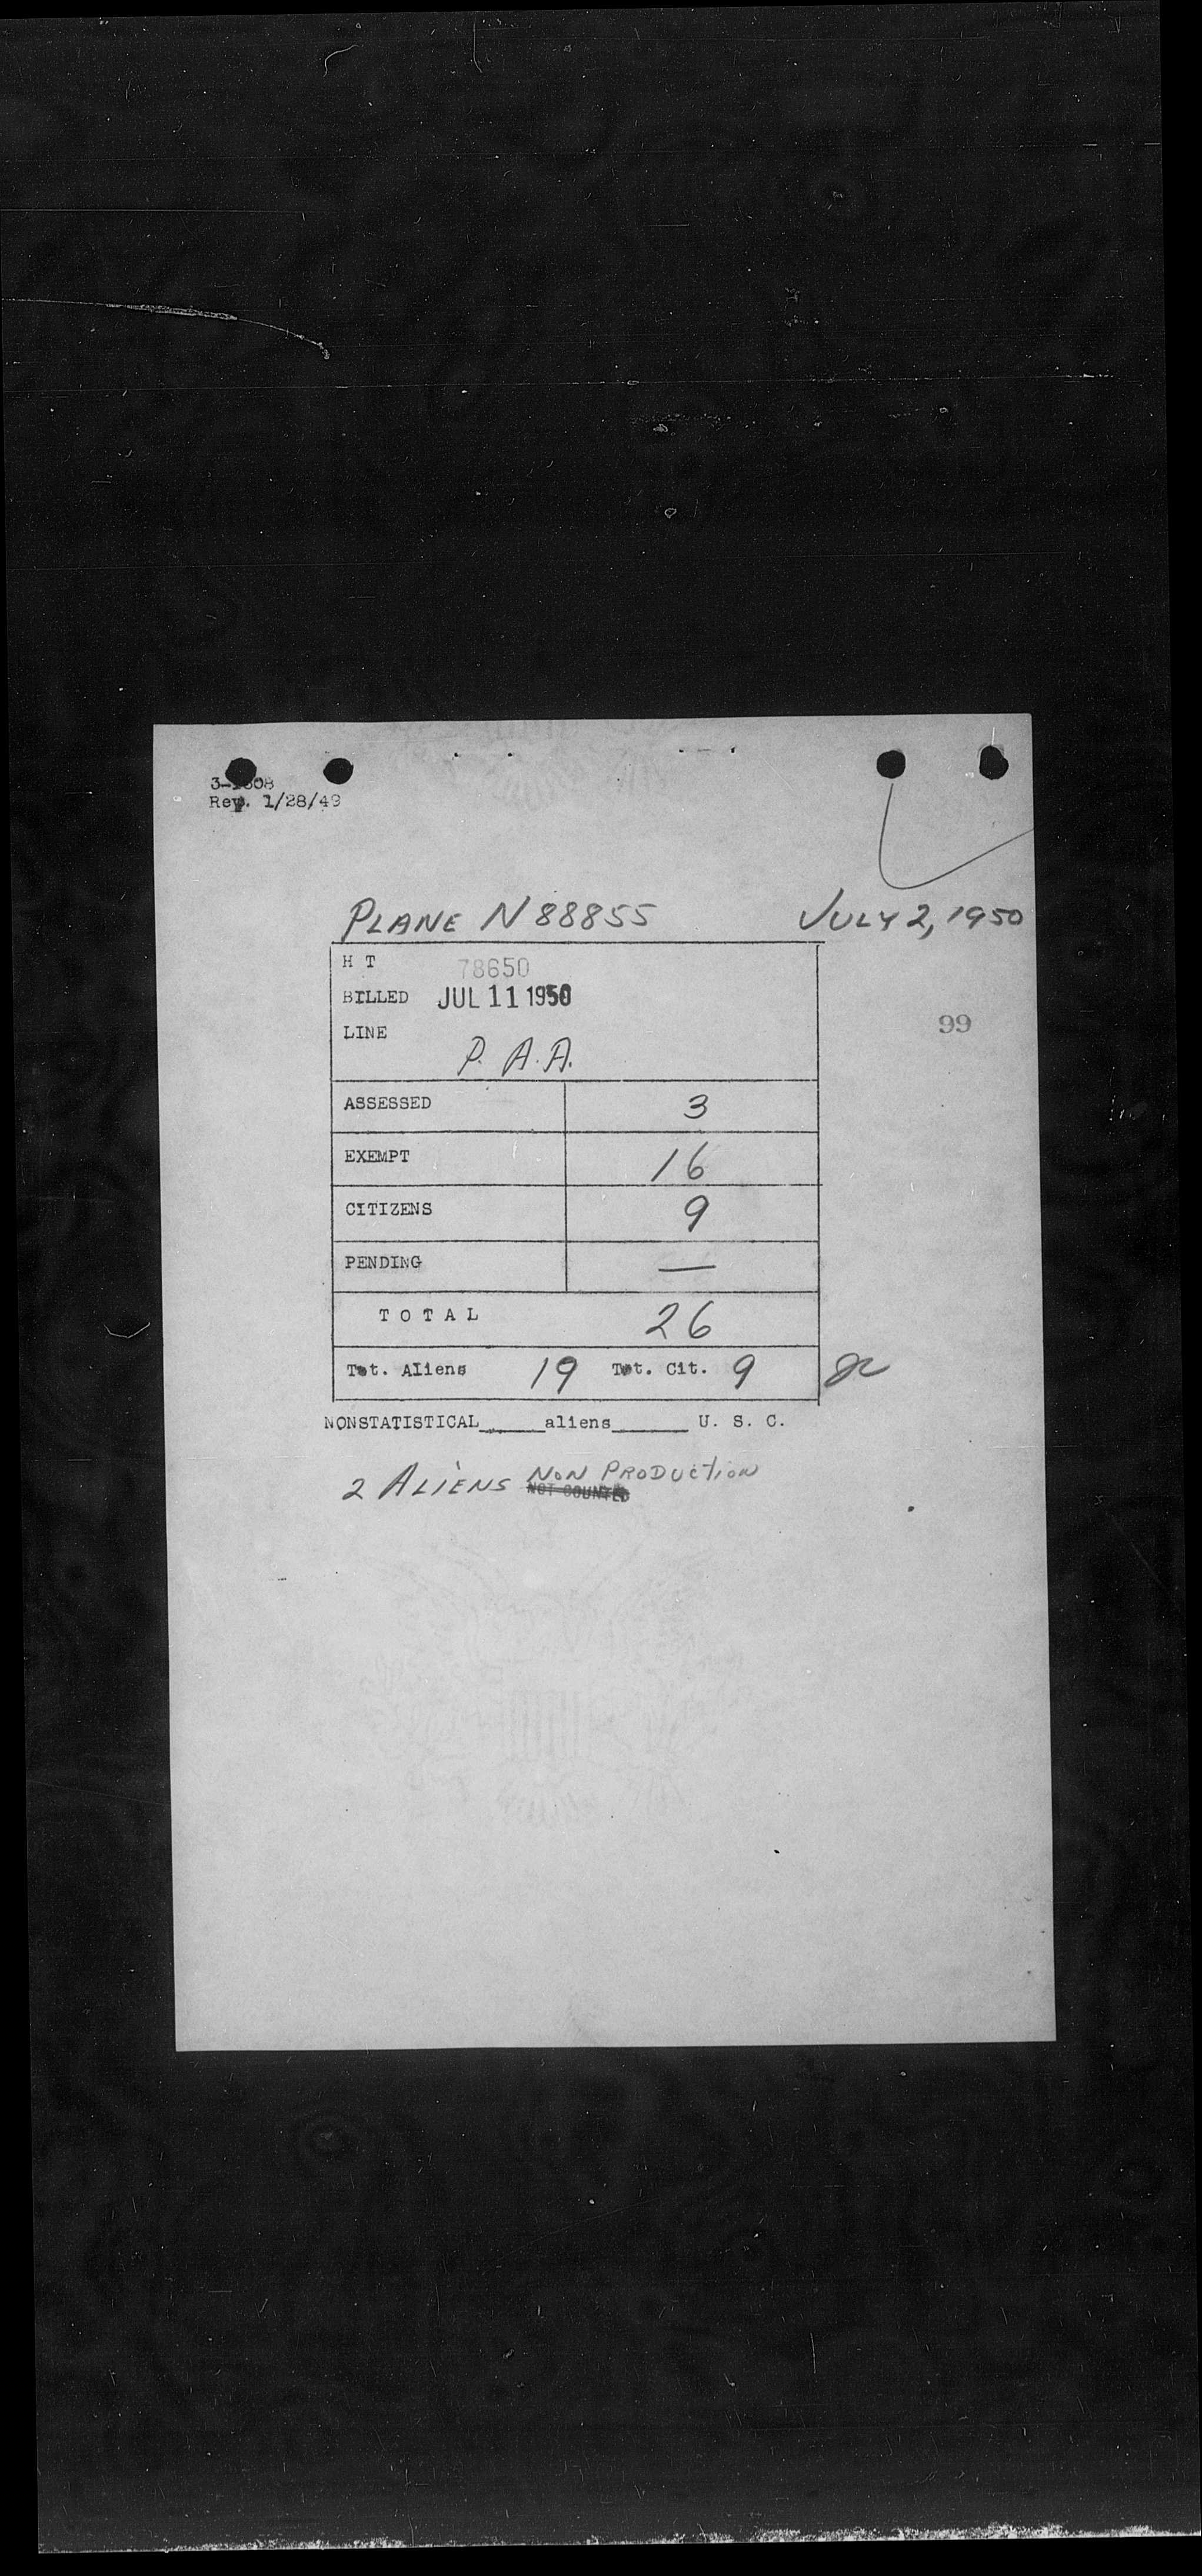 Rev. 1/28/49
PLANE N88855 JULY 2, 1950
H T 78650
BILLED JUL 11 1950
LINE
P. A.A.
99
ASSESSED 3
EXEMPT 16
CITIZENS 9
PENDING —
TOTAL 26
Tot. Aliens 19 Tot. Cit. 9
NONSTATISTICAL_____aliens______ U. S. C.
2 ALIENS NON PRODUCTION
NOT COUNTED